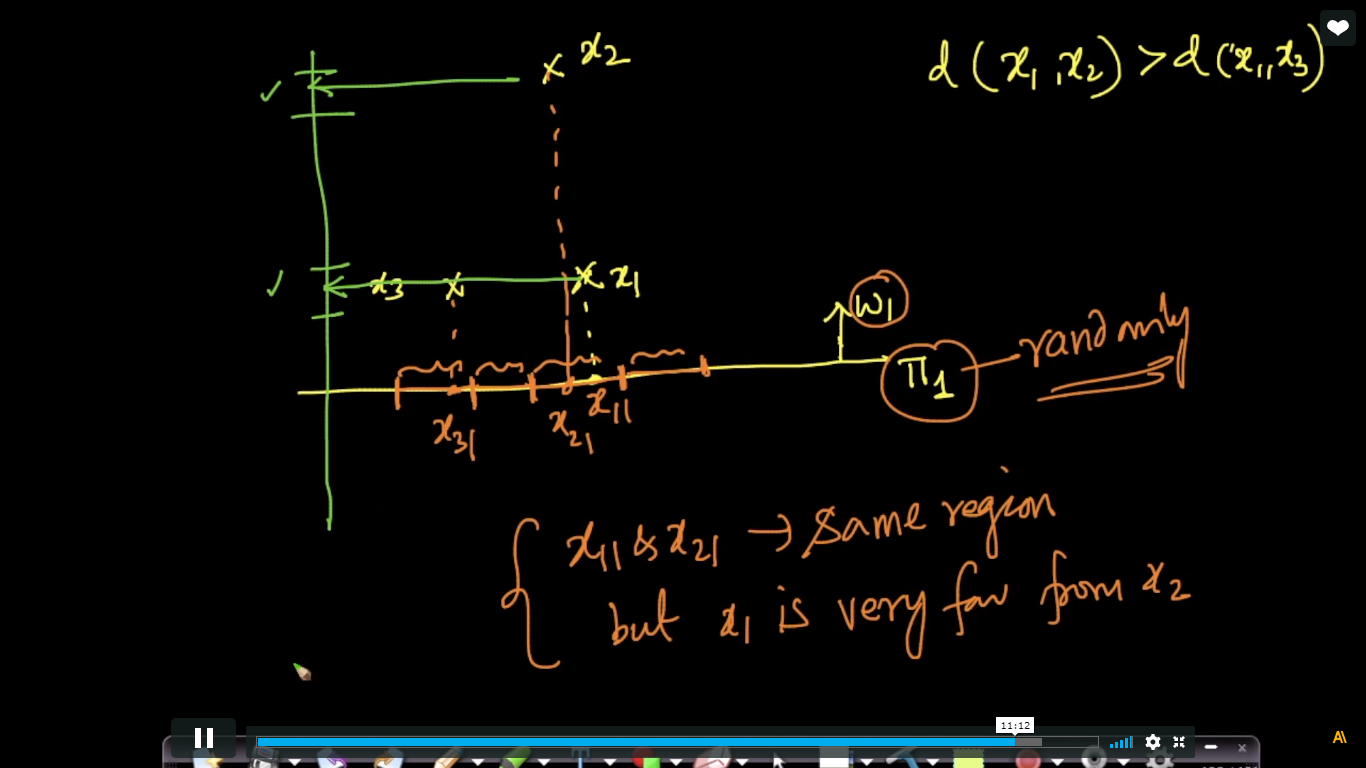 x₂
d(x₁,x₂) > d(x₁,x₃)
✓
✓
x₃
x₁
w₁
π₁
randomly
x₃₁
x₂₁
x₁₁
x₁₁ & x₂₁ → same region
but x₁ is very far from x₂
11:12